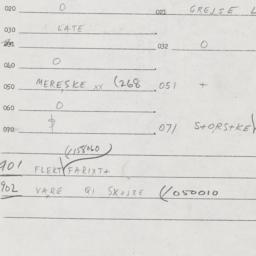 020 0 021 GREJSE L
030 LATE
031 032 0
040 0
050 MERESKE xx (268 051 +
060 0
070 071 S+ORS+KE
(/158060
901 FLERT FARIXT+
902 VARE GI SKOJTE (/050010